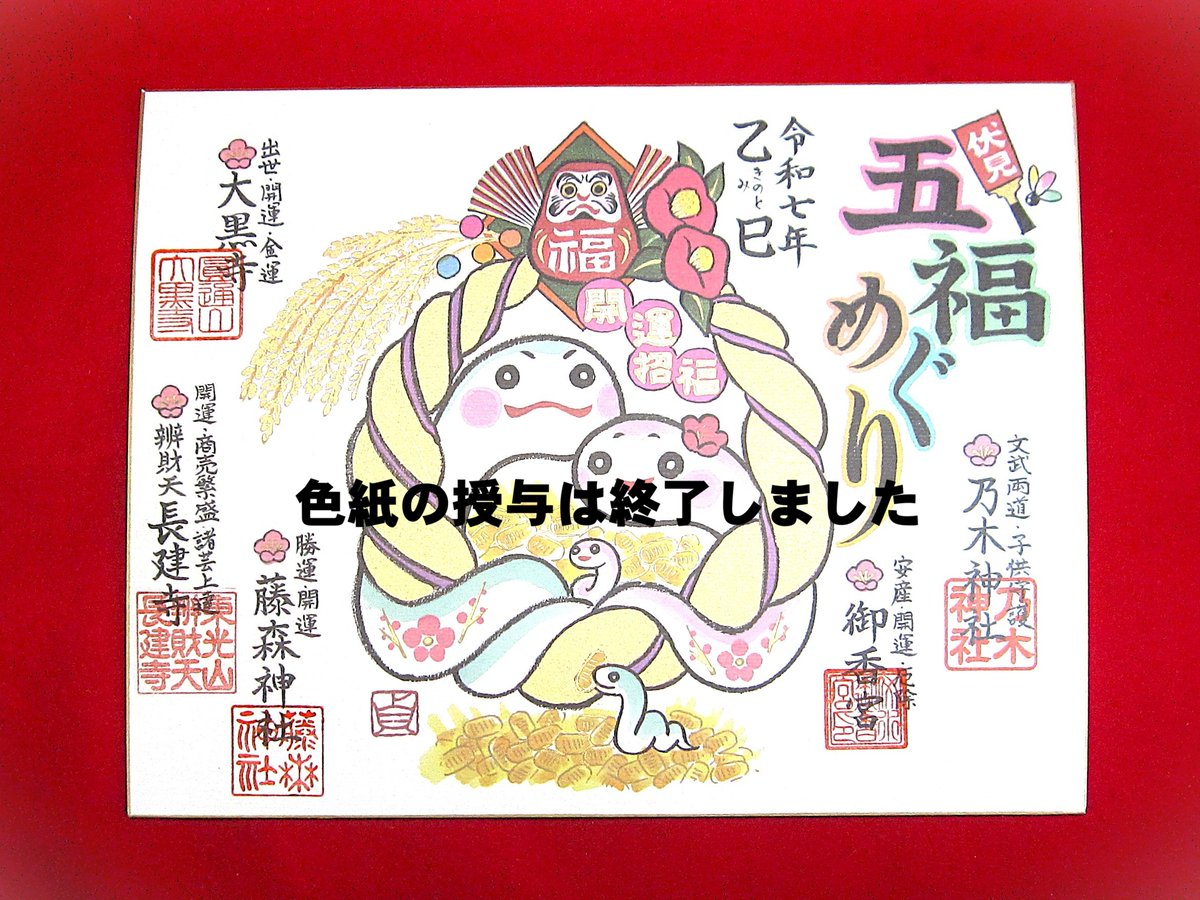 伏見
五福めぐり
令和七年
乙巳
きのと
み
福
開運招福
文武両道・子供守護
乃木神社
乃木神社
安産・開運・厄除
御香宮
色紙の授与は終了しました
出世・開運・金運
大黒寺
圓通山
大黒寺
開運・商売繁盛諸芸上達
辨財天長建寺
東光山
辨財天
長建寺
勝運・開運
藤森神社
藤森神社
貞